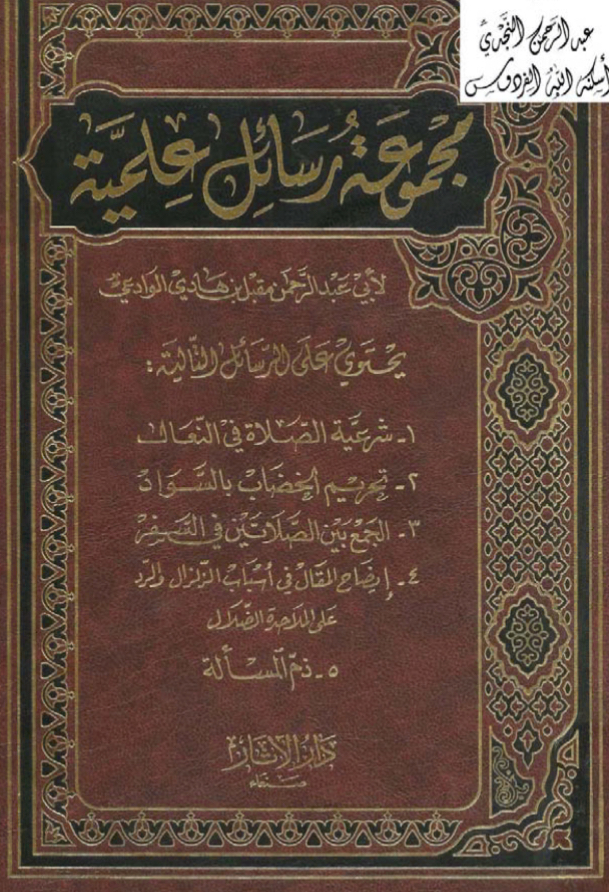 عبد الرحمن النجدي
أسكنه الله الفردوس
مجموعة رسائل علمية
لأبي عبد الرحمن مقبل بن هادي الوادعي
يحتوي على الرسائل التالية :
١- شرعية الصلاة في النعال
٢- تحريم الخضاب بالسواد
٣- الجمع بين الصلاتين في السفر
٤- إيضاح المقال في أسباب الزلزال والرد
على الملاحدة الضلال
٥- ذم المسألة
دار الآثار
صنعاء